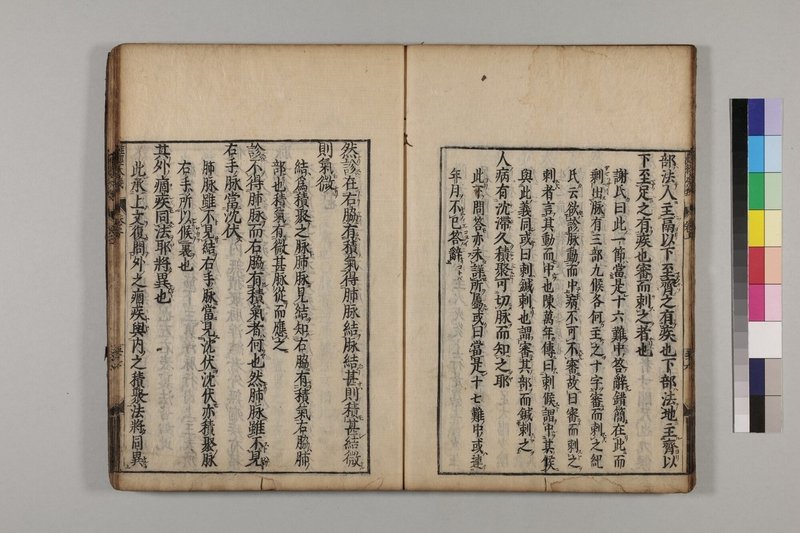 部法人主鬲以下至齊之有疾也下部法地主齊以
下至足之有疾也審而刺之者也
謝氏曰此一節當是十六難中答辭錯簡在此而
剰出脉有三部九候各何主之十字審而刺之紀
氏云欲診脉動而中病不可不審故曰審而刺之
刺者言其動而中也陳萬年傳曰刺候謂中其候
與此義同或曰刺鍼刺也謂審其部而鍼刺之
人病有沈滯久積聚可切脉而知之耶
此下問答亦未詳所屬或曰當是十七難中或連
年月不已答辭
然診在右脇有積氣得肺脉結脉結甚則積甚結微
則氣微
結爲積聚之脉肺脉見結知右脇有積氣右脇肺
部也積氣有微甚脉從而應之
診不得肺脉而右脇有積氣者何也然肺脉雖不見
右手脉當沈伏
肺脉雖不見結右手脉當見沈伏沈伏亦積聚脉
右手所以候裏也
其外痼疾同法耶將異也
此承上文復問外之痼疾與内之積聚法將同異